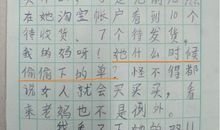 在她淘宝帐户看到10个
待收货.7个待发货.
我的妈呀!她什么时候
偷偷下的单?怪不得都
说女人就会买买买,看
来老妈也不是例外。